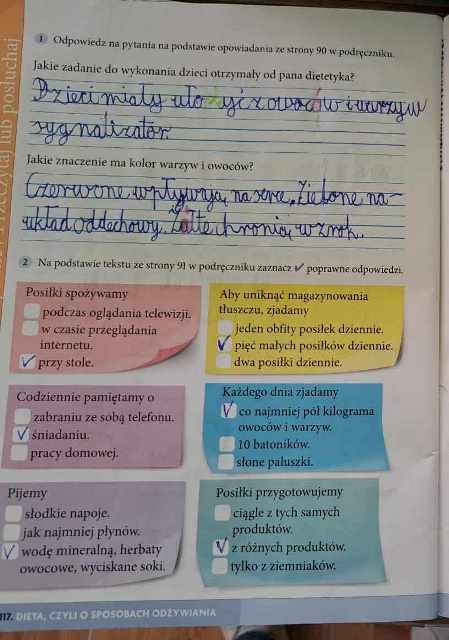 Przeczytaj lub posłuchaj
1 Odpowiedz na pytania na podstawie opowiadania ze strony 90 w podręczniku.
Jakie zadanie do wykonania dzieci otrzymały od pana dietetyka?
Dzieci miały ułożyć z owoców i warzyw
sygnalizator.
Jakie znaczenie ma kolor warzyw i owoców?
Czerwone wpływają na serce, Zielone na-
układ oddechowy. Żółte chronią wzrok.
2 Na podstawie tekstu ze strony 91 w podręczniku zaznacz ✓ poprawne odpowiedzi.
Posiłki spożywamy
podczas oglądania telewizji.
w czasie przeglądania
internetu.
✓ przy stole.
Aby uniknąć magazynowania
tłuszczu, zjadamy
jeden obfity posiłek dziennie.
✓ pięć małych posiłków dziennie.
dwa posiłki dziennie.
Codziennie pamiętamy o
zabraniu ze sobą telefonu.
✓ śniadaniu.
pracy domowej.
Każdego dnia zjadamy
✓ co najmniej pół kilograma
owoców i warzyw.
10 batoników.
słone paluszki.
Pijemy
słodkie napoje.
jak najmniej płynów.
✓ wodę mineralną, herbaty
owocowe, wyciskane soki.
Posiłki przygotowujemy
ciągle z tych samych
produktów.
✓ z różnych produktów.
tylko z ziemniaków.
117. DIETA, CZYLI O SPOSOBACH ODŻYWIANIA